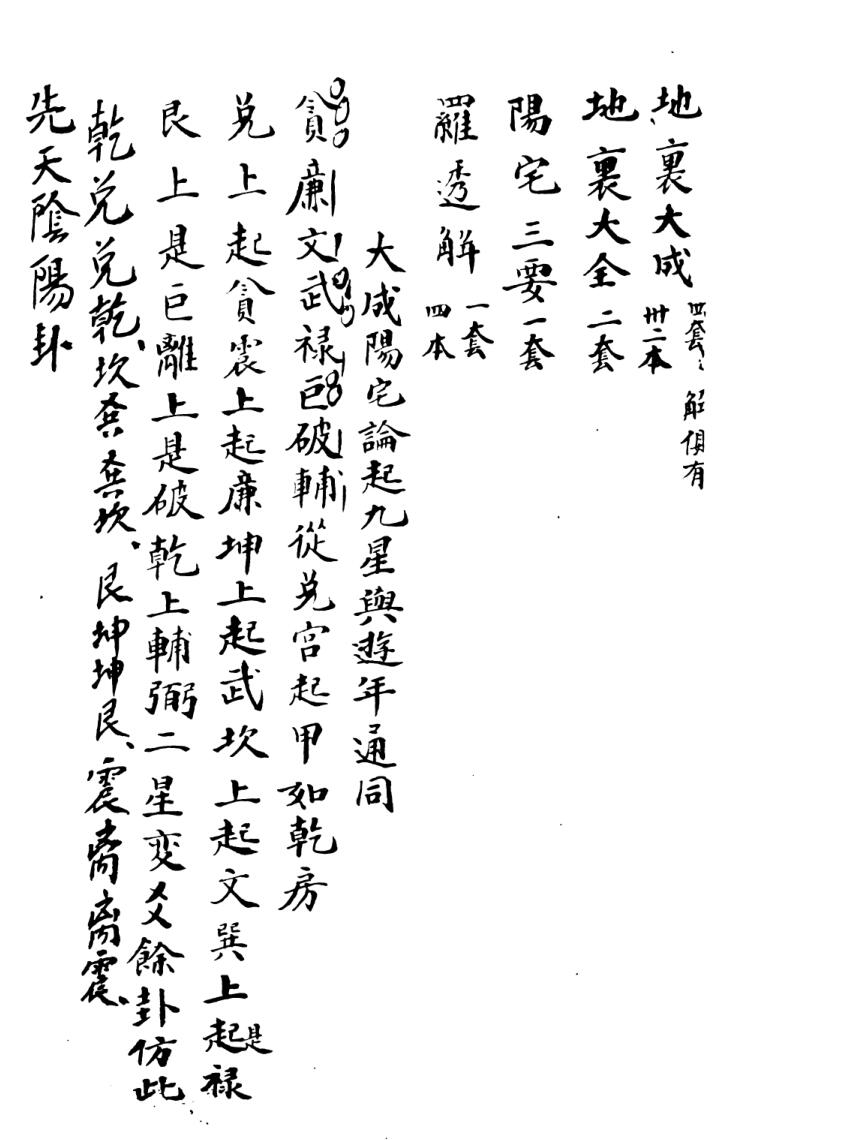 地裏大成 四套 卅二本 解俱有
地裏大全二套
陽宅三要一套
羅透解 一套 四本
大成陽宅論起九星與遊年通同
貪廉文武禄巨破輔從兑宫起甲如乾房
兑上起貪震上起廉坤上起武坎上起文巽上起是禄
艮上是巨離上是破乾上輔弼二星变爻餘卦仿此
乾兑兑乾、坎巽巽坎、艮坤坤艮、震离离震、
先天陰陽卦